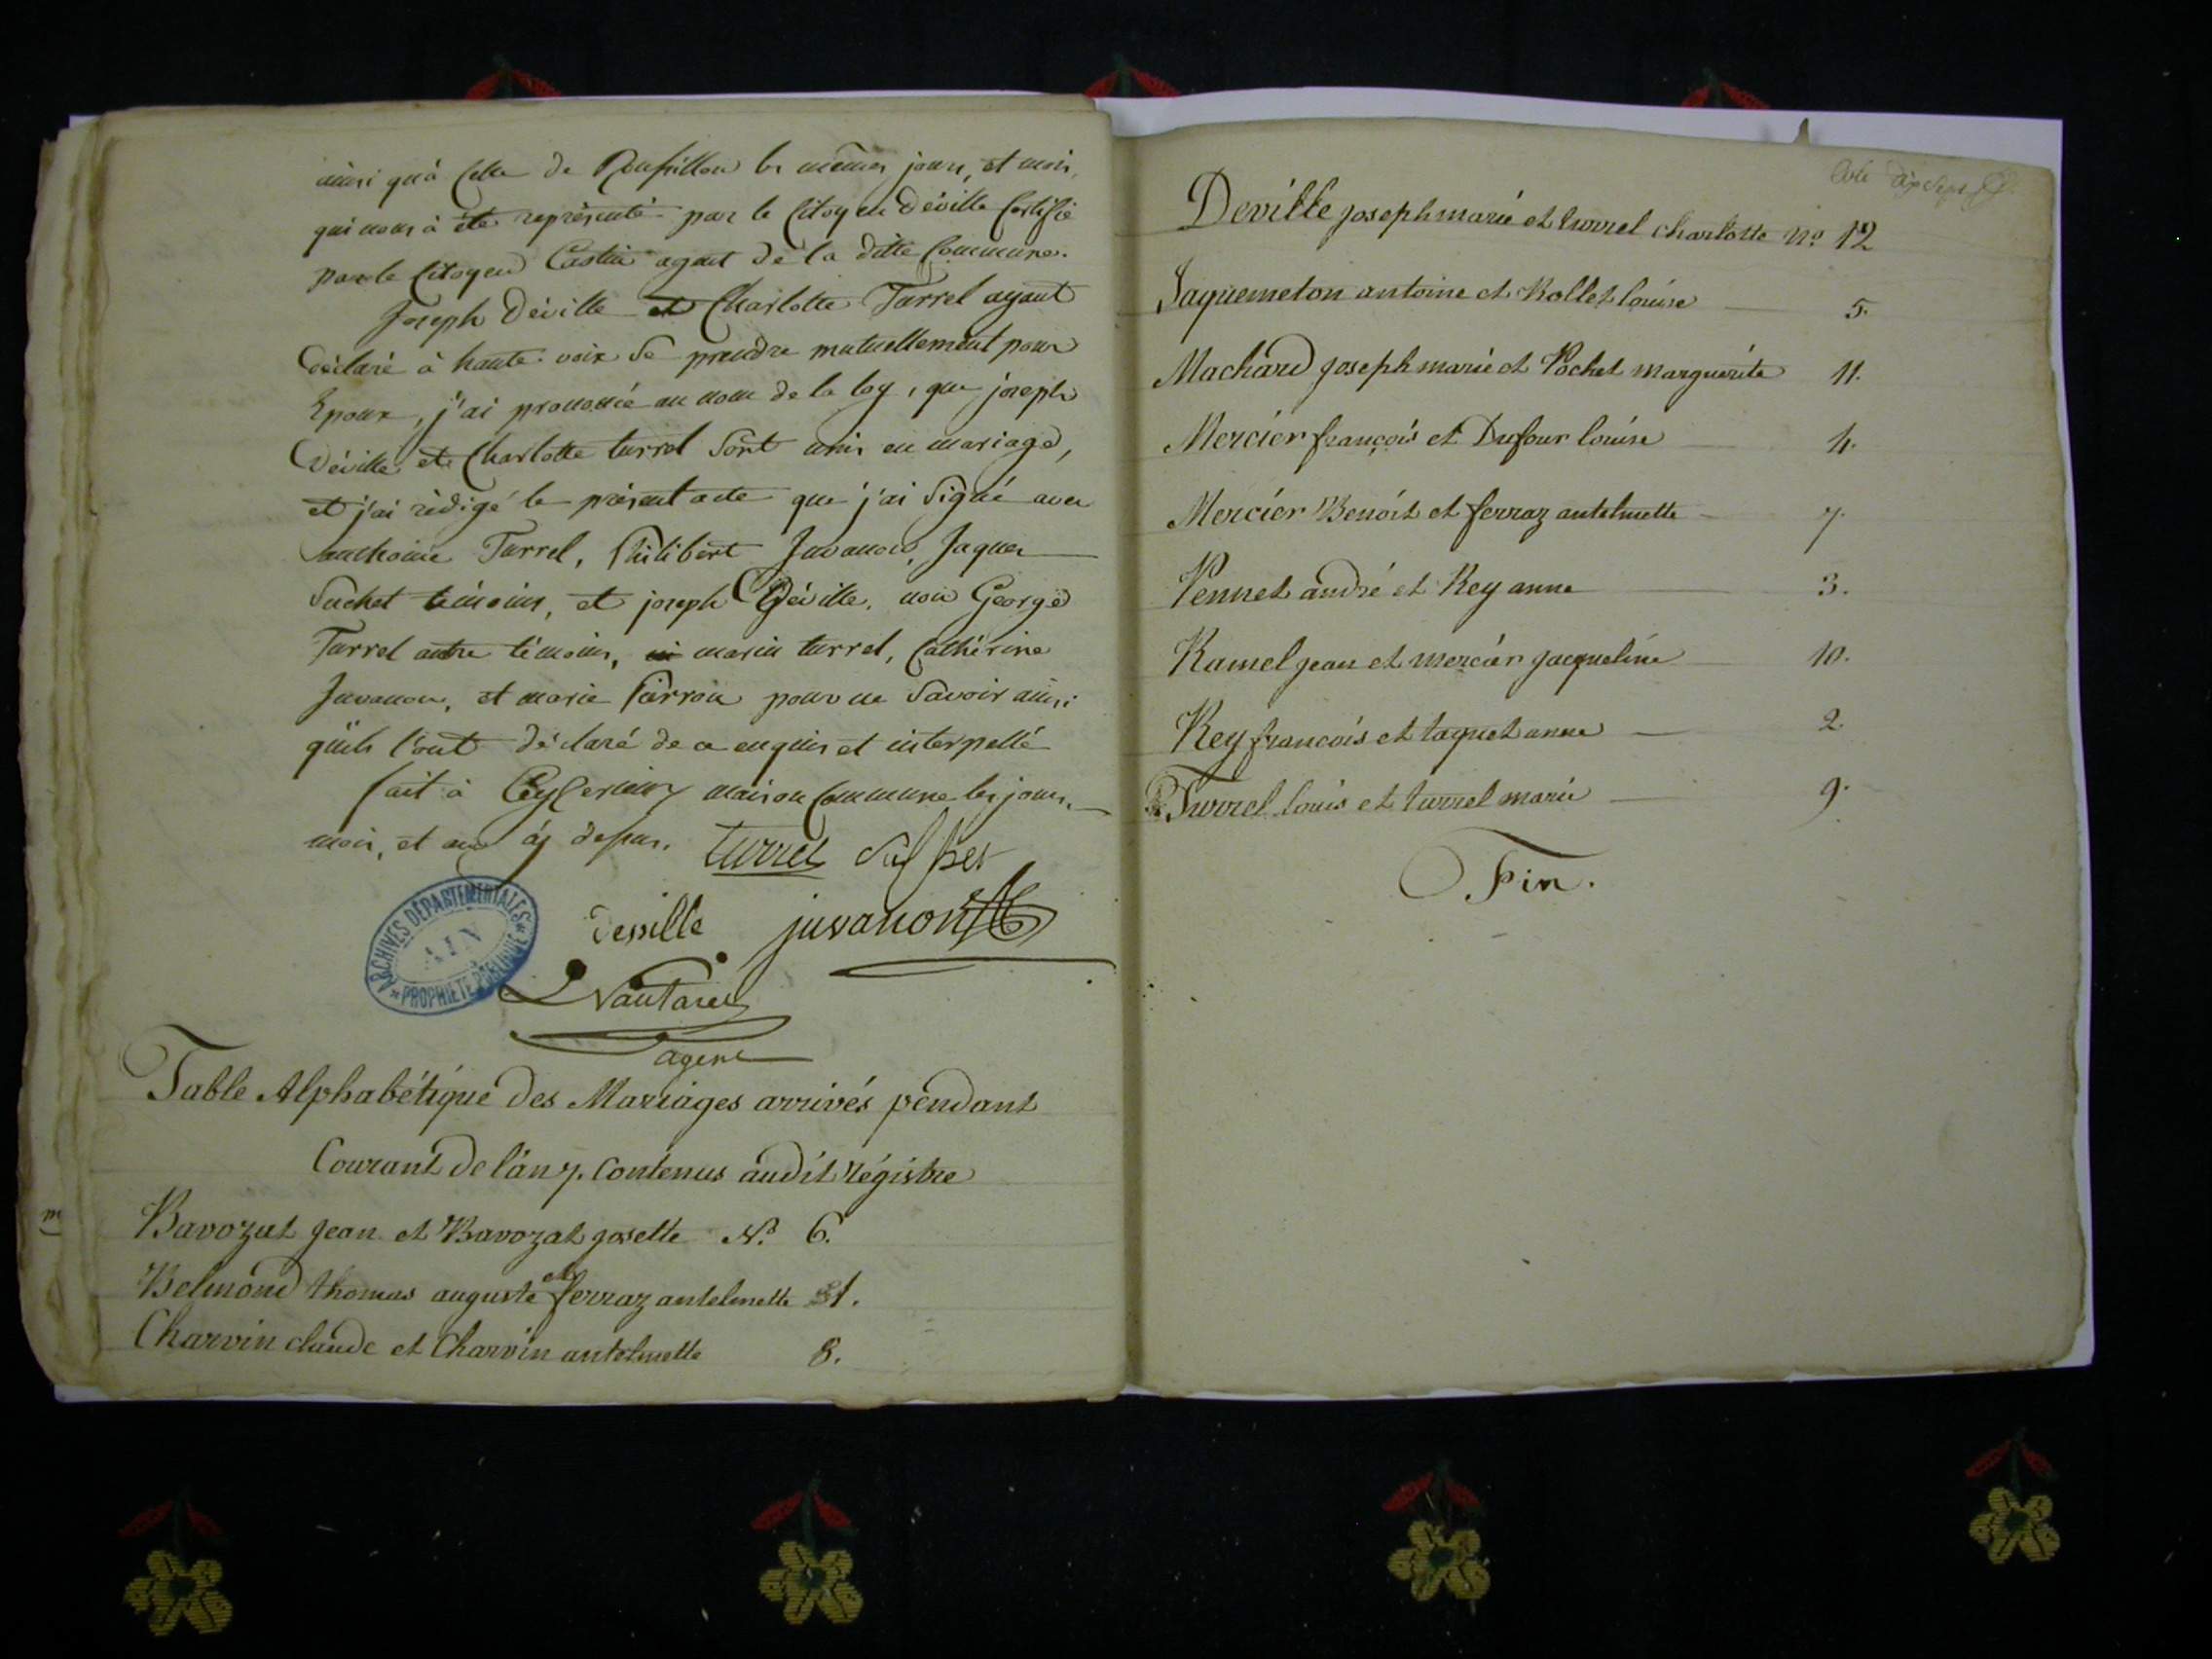 ainsi qu'à celle de les mêmes jours, et mois,
qui nous à été représenté par le Citoyen Déville Certifié
par le Citoyen Castin agent de la ditte Commune.
Joseph Déville et Charlotte Turrel ayant
déclaré à haute voix Se prendre mutuellement pour
Epoux, j'ai prononcé au nom de la loy, que joseph
Déville et Charlotte turrel Sont unis en mariage,
et j'ai rédigé le présent acte que j'ai Signé avec
anthoine Turrel, Philibert Juvanon, Jaques
Suchet témoins, et joseph Déville, non George
Turrel autre témoins, marin turrel, Cathérine
Juvanon, et marie pour ne Savoir ainsi
qu'ils l'ont déclaré de ce enquis et interpellé
fait à Ceyzerieux maison Commune les jours,
mois, et an
turrel
ARCHIVES DÉPARTEMENTALES
AIN
PROPRIÉTÉ PUBLIQUE
deville juvanon
Vautaret
agent
Table Alphabétique Des Mariages arrivés pendant
Courant de l'an 7. Contenus audit régistre
Bavozat jean et Bavozat josette N.º 6.
Belmond thomas auguste et ferraz antelmette 1.
Charvin claude et Charvin antelmette 8.
Cote dix Sept
Deville joseph marie et turrel charlotte nº 12
Jaquemeton antoine et Rollet louise 5.
Machard joseph marie et Pochet marguerite 11.
Mercier françois et Dufour louise 4.
Mercier Benoît et ferraz antelmette 7.
Pennet andré et Rey anne 3.
Ramel jean et mercier jacqueline 10.
Rey francois et taquet anne 2.
Turrel louis et turrel marie 9.
Fin.